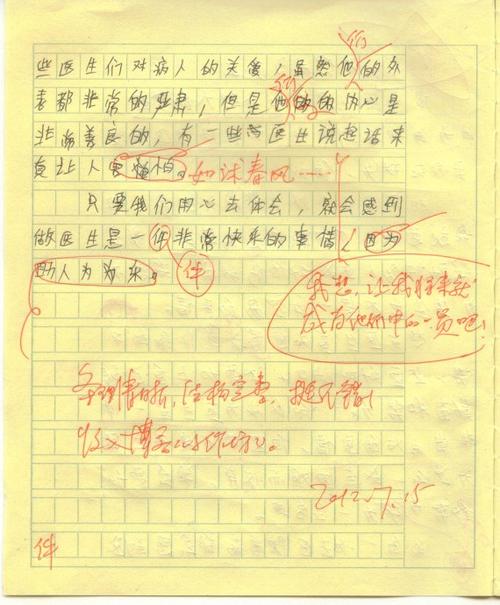 们
些医生们对病人的关爱，虽然他的外
们
表都非常的严肃，但是他的内心是
非常善良的，有一些医生说起话来
真让人
如沐春风……
只要我们用心去体会，就会感到
做医生是一件非常快乐的事情，因为
助人为为乐。
件
我想，让我将来就
成为他们中的一员吧！
条理清晰，结构完整，挺不错！
2012.7.15
件